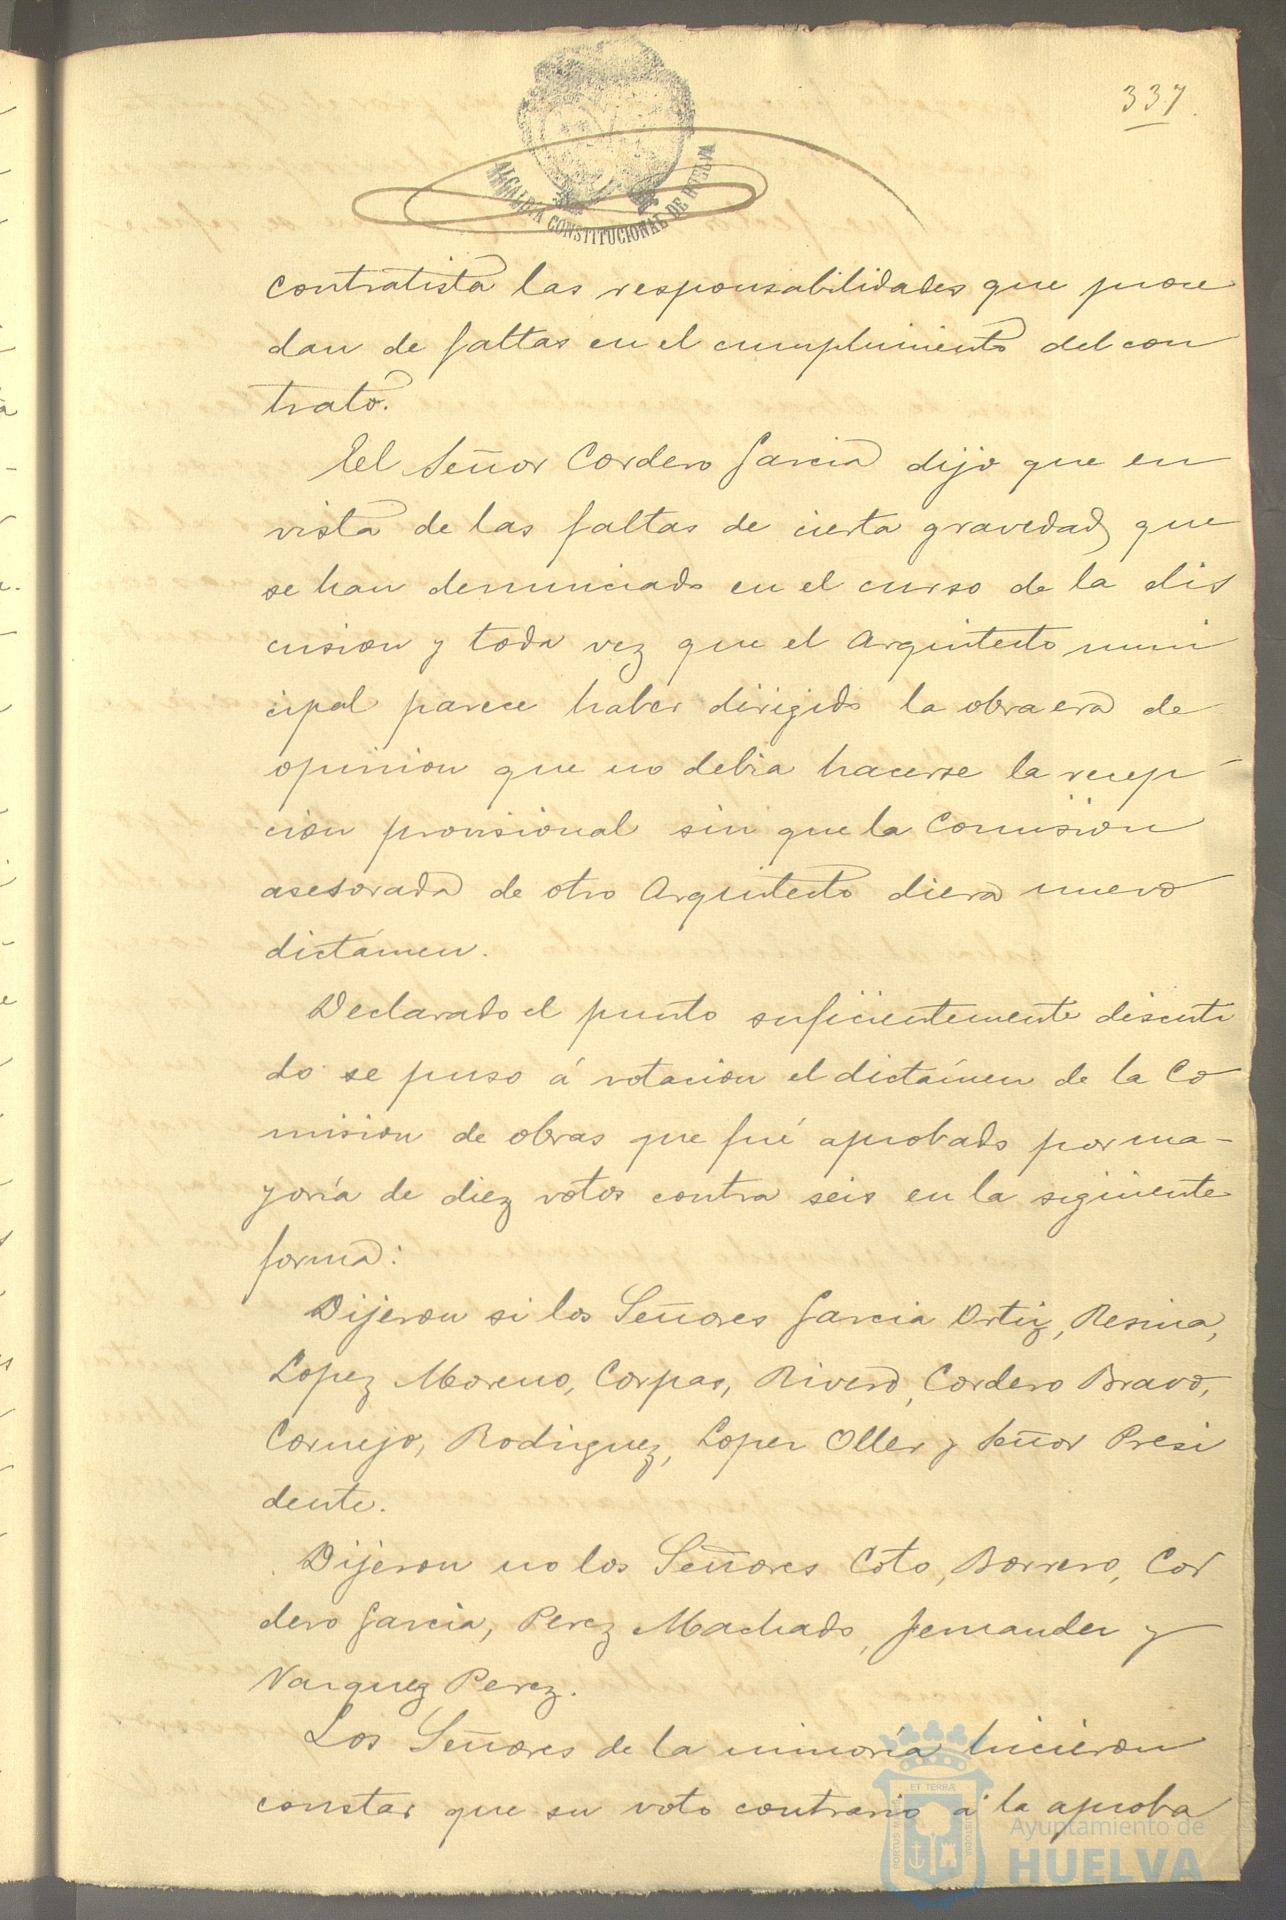 337
ALCALDIA CONSTITUCIONAL DE HUELVA
contratista las responsabilidades que proce
dan de faltas en el cumplimiento del con
trato.
El Señor Cordero Garcia dijo que en
vista de las faltas de cierta gravedad que
se han denunciado en el curso de la dis
cusion y toda vez que el Arquitecto muni
cipal parece haber dirigido la obra era de
opinion que no debia hacerse la recep-
cion provisional sin que la Comision
asesorada de otro Arquitecto diera nuevo
dictamen.
Declarado el punto suficientemente discuti
do se puso á votacion el dictámen de la Co
mision de obras que fué aprobado por ma-
yoría de diez votos contra seis en la siguiente
forma:
Dijeron si los Señores Garcia Ortiz, Resina,
Lopez Moreno, Corpas, Rivero, Cordero Bravo,
Cornejo, Rodriguez, Lopez Oller y Señor Presi
dente.
Dijeron no los Señores Coto, Borrero, Cor
dero Garcia, Perez Machado, Fernandez y
Vazquez Perez.
Los Señores de la minoría hicieron
constar que su voto contrario á la aproba
PORTUS MARIS ET TERRÆ CUSTODIA
Ayuntamiento de
HUELVA